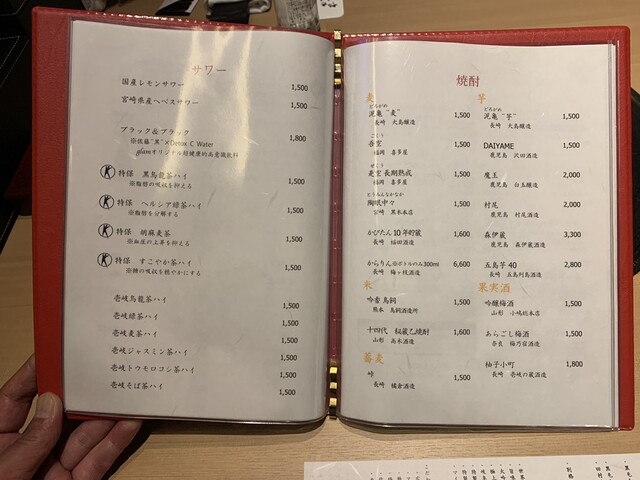 サワー
国産レモンサワー 1,500
宮崎県産ヘベスサワー 1,500
ブラック&ブラック 1,800
※佐藤"黒"×Detox C Water
glamオリジナル超健康的高意識飲料
特保 黒烏龍茶ハイ 1,500
※脂肪の吸収を抑える
特保 ヘルシア緑茶ハイ 1,500
※脂肪を分解する
特保 胡麻麦茶 1,500
※血圧の上昇を抑える
特保 すこやか茶ハイ 1,500
※糖の吸収を穏やかにする
壱岐烏龍茶ハイ 1,500
壱岐緑茶ハイ 1,500
壱岐麦茶ハイ 1,500
壱岐ジャスミン茶ハイ 1,500
壱岐トウモロコシ茶ハイ 1,500
壱岐そば茶ハイ 1,500
焼酎
麦
どろがめ
泥亀"麦" 1,500
長崎 大島醸造
ごくう
吾空 1,500
福岡 喜多屋
是空 長期熟成 1,500
福岡 喜多屋
陶眠中々 1,500
宮崎 黒木本店
かぴたん 10年貯蔵 1,600
長崎 福田酒造
からりん※ボトルのみ300ml 6,600
長崎 梅ヶ枝酒造
米
吟香 鳥飼 1,500
熊本 鳥飼酒造所
十四代 秘蔵乙焼酎 1,600
山形 高木酒造
蕎麦
峠 1,500
長野 橘倉酒造
芋
どろがめ
泥亀"芋" 1,500
長崎 大島醸造
DAIYAME 1,500
鹿児島 浜田酒造
魔王 2,000
鹿児島 白玉醸造
村尾 2,000
鹿児島 村尾酒造
森伊蔵 3,300
鹿児島 森伊蔵酒造
五島芋 40 2,800
長崎 五島列島酒造
果実酒
吟醸梅酒 1,500
山形 小嶋総本店
あらごし梅酒 1,500
奈良 梅乃宿酒造
柚子小町 1,800
長崎 壱岐の蔵酒造